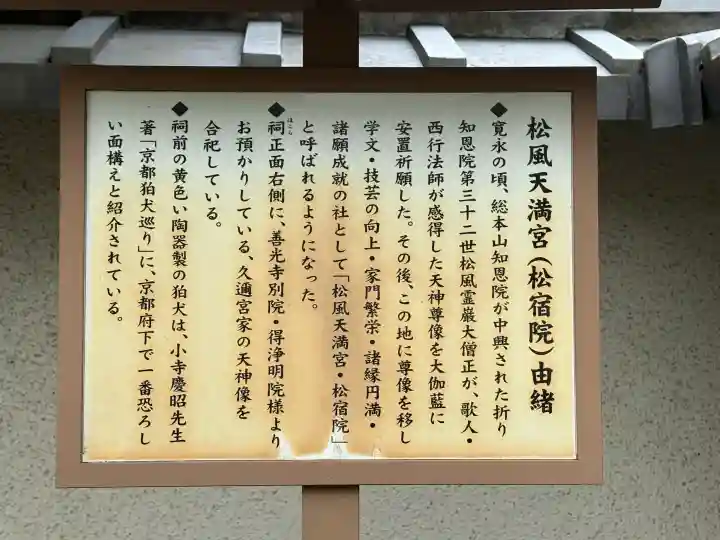 松風天満宮(松宿院)由緒
◆寛永の頃、総本山知恩院が中興された折り
知恩院第三十二世松風霊巌大僧正が、歌人・
西行法師が感得した天神尊像を大伽藍に
安置祈願した。その後、この地に尊像を移し
学文・技芸の向上・家門繁栄・諸縁円満・
諸願成就の社として「松風天満宮・松宿院」
と呼ばれるようになった。
◆祠正面右側に、善光寺別院・得浄明院様より
ほこら
お預かりしている、久邇宮家の天神像を
合祀している。
◆祠前の黄色い陶器製の狛犬は、小寺慶昭先生
著「京都狛犬巡り」に、京都府下で一番恐ろし
い面構えと紹介されている。